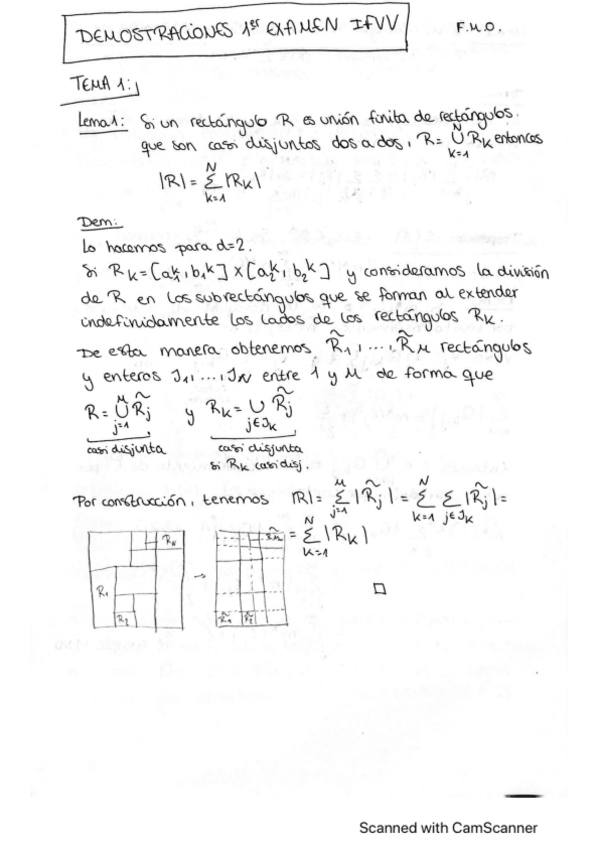 DEMOSTRACIONES 1er EXAMEN IfVV
F.M.O.
TEMA 1:
Lema 1: Si un rectángulo R es unión finita de rectángulos
que son casi disjuntos dos a dos, R = ⋃_{k=1}^{N} R_k entonces
|R| = ∑_{k=1}^{N} |R_k|
Dem:
Lo hacemos para d=2.
Si R_k = [a_1^k, b_1^k] x [a_2^k, b_2^k] y consideramos la división
de R en los subrectángulos que se forman al extender
indefinidamente los lados de los rectángulos R_k.
De esta manera obtenemos R̃_1, ..., R̃_M rectángulos
y enteros J_1, ..., J_N entre 1 y M de forma que
R = ⋃_{j=1}^{M} R̃_j y R_k = ⋃_{j∈J_k} R̃_j
casi disjunta casi disjunta
si R_k casi disj.
Por construcción, tenemos |R| = ∑_{j=1}^{M} |R̃_j| = ∑_{k=1}^{N} ∑_{j∈J_k} |R̃_j| =
= ∑_{k=1}^{N} |R_k|
R_N
R_1
R_2
→
R̃_M
R̃_1 R̃_2
□
Scanned with CamScanner